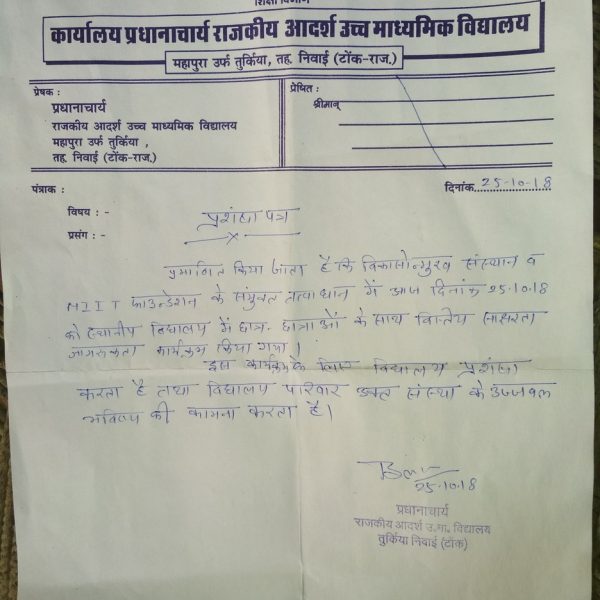 शिक्षा विभाग
कार्यालय प्रधानाचार्य राजकीय आदर्श उच्च माध्यमिक विद्यालय
महापुरा उर्फ तुर्किया, तह. निवाई (टोंक-राज.)
प्रेषक :
प्रेषित :
प्रधानाचार्य
श्रीमान्
राजकीय आदर्श उच्च माध्यमिक विद्यालय
महापुरा उर्फ तुर्किया ,
तह. निवाई (टोंक-राज.)
पंत्राक :
दिनांक 25-10-18
विषय : - प्रशंसा पत्र
प्रसंग : -
प्रमाणित किया जाता है कि विकासोन्मुख संस्थान व
NIIT फाउन्डेशन के संयुक्त तत्वाधान में आज दिनांक 25.10.18
को स्थानीय विद्यालय में छात्र-छात्राओं के साथ वित्तीय साक्षरता
जागरूकता कार्यक्रम किया गया।
इस कार्यक्रम के लिए विद्यालय प्रशंसा
करता है तथा विद्यालय परिवार उक्त संस्था के उज्जवल
भविष्य की कामना करता है।
25.10.18
प्रधानाचार्य
राजकीय आदर्श उ.मा. विद्यालय
तुर्किया निवाई (टोंक)